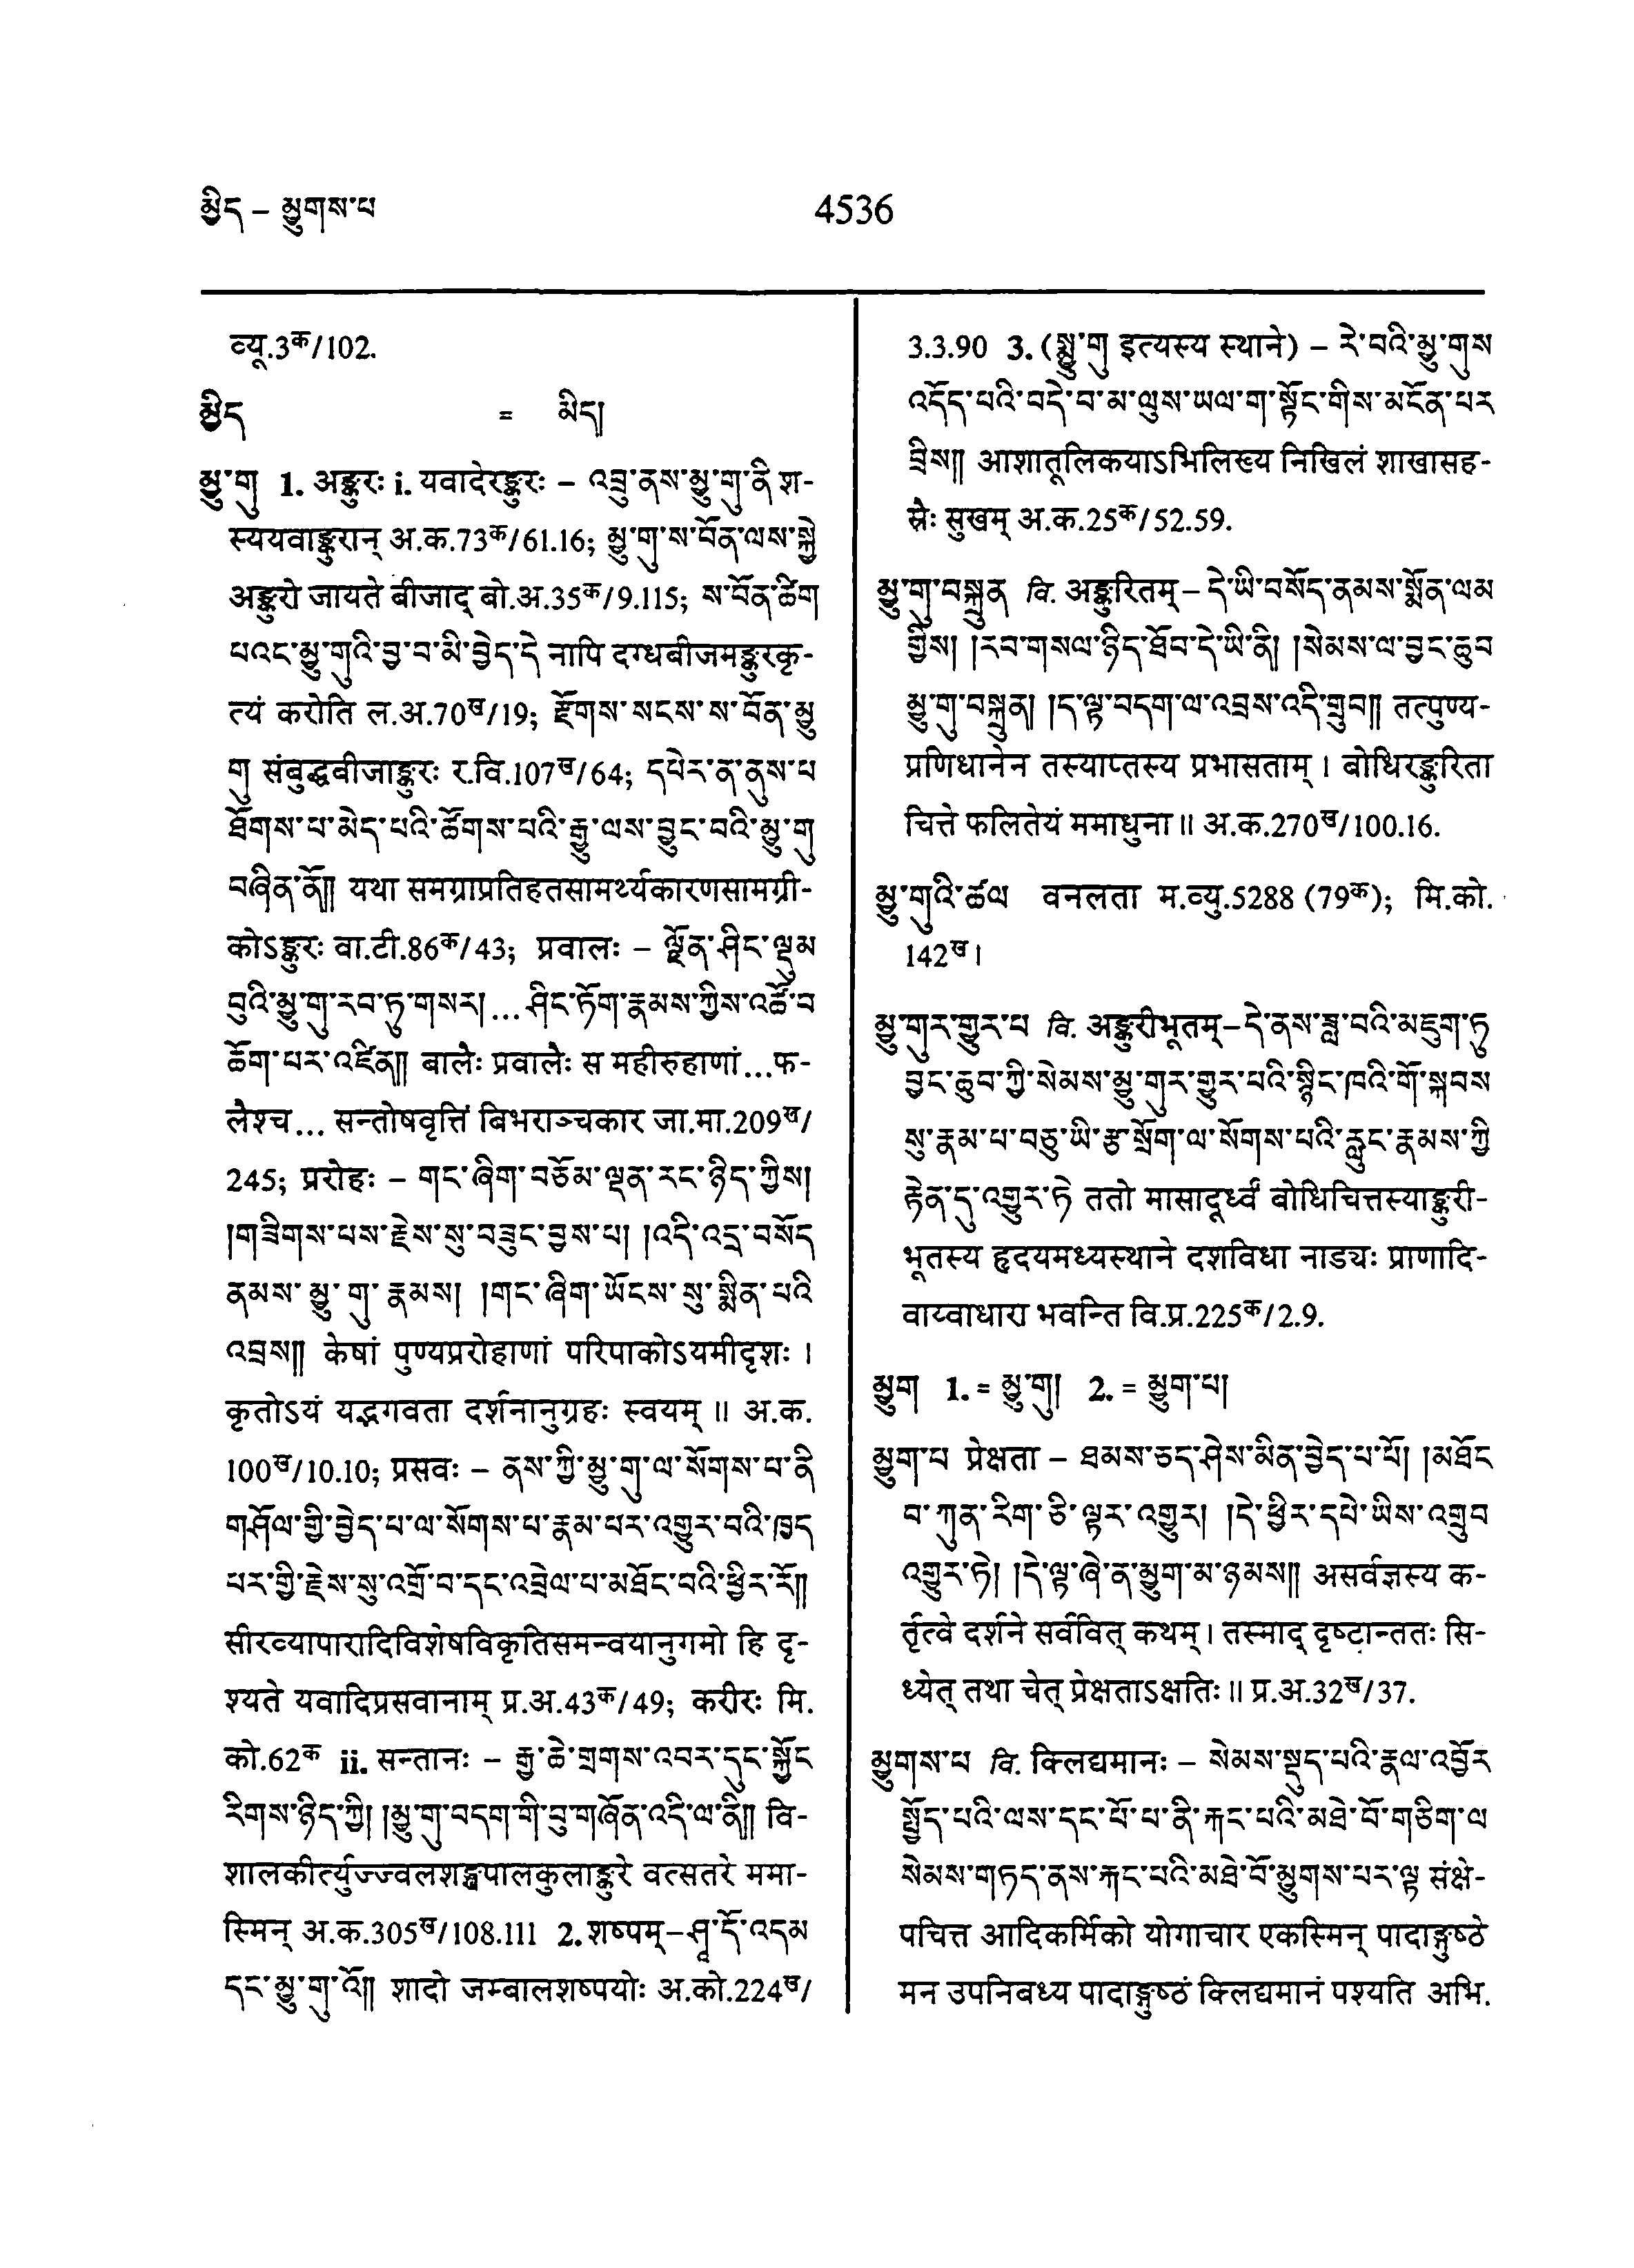 མྱིད – མྱུགས་པ
4536
व्यू.3क/102.
མྱིད = མིད།
མྱུ་གུ 1. अङ्कुरः i. यवादेरङ्कुरः – འབྲུ་ནས་མྱུ་གུ་ནི श-
स्ययवाङ्कुरान् अ.क.73क/61.16; མྱུ་གུ་ས་བོན་ལས་སྐྱེ
अङ्कुरो जायते बीजाद् बो.अ.35क/9.115; ས་བོན་ཚིག
པའང་མྱུ་གུའི་བྱ་བ་མི་བྱེད་དེ नापि दग्धबीजमङ्कुरकृ-
त्यं करोति ल.अ.70ख/19; རྫོགས་སངས་ས་བོན་མྱུ
གུ संबुद्धबीजाङ्कुरः र.वि.107ख/64; དཔེར་ན་ནུས་པ
ཐོགས་པ་མེད་པའི་ཚོགས་པའི་རྒྱུ་ལས་བྱུང་བའི་མྱུ་གུ
བཞིན་ནོ༎ यथा समग्राप्रतिहतसामर्थ्यकारणसामग्री-
कोऽङ्कुरः वा.टी.86क/43; प्रवालः – ལྗོན་ཤིང་ལྡུམ
བུའི་མྱུ་གུ་རབ་ཏུ་གསར།...ཤིང་ཏོག་རྣམས་ཀྱིས་འཚོ་བ
ཆོག་པར་འཛིན༎ बालैः प्रवालैः स महीरुहाणां...फ-
लैश्च... सन्तोषवृत्तिं बिभराञ्चकार जा.मा.209ख/
245; प्ररोहः – གང་ཞིག་བཅོམ་ལྡན་རང་ཉིད་ཀྱིས།
།གཟིགས་པས་རྗེས་སུ་བཟུང་བྱས་པ། །འདི་འདྲ་བསོད
ནམས་མྱུ་གུ་རྣམས། །གང་ཞིག་ཡོངས་སུ་སྨིན་པའི
འབྲས༎ केषां पुण्यप्ररोहाणां परिपाकोऽयमीदृशः ।
कृतोऽयं यद्भगवता दर्शनानुग्रहः स्वयम् ॥ अ.क.
100ख/10.10; प्रसवः – ནས་ཀྱི་མྱུ་གུ་ལ་སོགས་པ་ནི
གཤོལ་གྱི་བྱེད་པ་ལ་སོགས་པ་རྣམ་པར་འགྱུར་བའི་ཁྱད
པར་གྱི་རྗེས་སུ་འགྲོ་བ་དང་འབྲེལ་པ་མཐོང་བའི་ཕྱིར་རོ༎
सीरव्यापारादिविशेषविकृतिसमन्वयानुगमो हि दृ-
श्यते यवादिप्रसवानाम् प्र.अ.43क/49; करीरः मि.
को.62क ii. सन्तानः – རྒྱ་ཆེ་གྲགས་འབར་དུང་སྐྱོང
རིགས་ཉིད་ཀྱི། །མྱུ་གུ་བདག་གི་བུ་གཞོན་འདི་ལ་ནི༎ वि-
शालकीर्त्युज्ज्वलशङ्खपालकुलाङ्कुरे वत्सतरे ममा-
स्मिन् अ.क.305ख/108.111 2. शष्पम्–ཤཱ་དོ་འདམ
དང་མྱུ་གུ་འོ༎ शादो जम्बालशष्पयोः अ.को.224ख/
3.3.90 3. (སྨྱུ་གུ इत्यस्य स्थाने) – རེ་བའི་མྱུ་གུས
འདོད་པའི་བདེ་བ་མ་ལུས་ཡལ་ག་སྟོང་གིས་མངོན་པར
བྲིས༎ आशातूलिकयाऽभिलिख्य निखिलं शाखासह-
स्रैः सुखम् अ.क.25क/52.59.
མྱུ་གུ་བསྐྲུན वि. अङ्कुरितम्– དེ་ཡི་བསོད་ནམས་སྨོན་ལམ
གྱིས། །རབ་གསལ་ཉིད་ཐོབ་དེ་ཡི་ནི། །སེམས་ལ་བྱང་ཆུབ
མྱུ་གུ་བསྐྲུན། །ད་ལྟ་བདག་ལ་འབྲས་འདི་གྲུབ༎ तत्पुण्य-
प्रणिधानेन तस्याप्तस्य प्रभासताम् । बोधिरङ्कुरिता
चित्ते फलितेयं ममाधुना ॥ अ.क.270ख/100.16.
མྱུ་གུའི་ཚལ वनलता म.व्यु.5288 (79क); मि.को.
142ख।
མྱུ་གུར་གྱུར་པ वि. अङ्कुरीभूतम्–དེ་ནས་ཟླ་བའི་མཇུག་ཏུ
བྱང་ཆུབ་ཀྱི་སེམས་མྱུ་གུར་གྱུར་པའི་སྙིང་ཁའི་གོ་སྐབས
སུ་རྣམ་པ་བཅུ་ཡི་རྩ་སྲོག་ལ་སོགས་པའི་རླུང་རྣམས་ཀྱི
རྟེན་དུ་འགྱུར་ཏེ ततो मासादूर्ध्वं बोधिचित्तस्याङ्कुरी-
भूतस्य हृदयमध्यस्थाने दशविधा नाड्यः प्राणादि-
वाय्वाधारा भवन्ति वि.प्र.225क/2.9.
མྱུག 1. = མྱུ་གུ། 2. = མྱུག་པ།
མྱུག་པ प्रेक्षता – ཐམས་ཅད་ཤེས་མིན་བྱེད་པ་པོ། །མཐོང
བ་ཀུན་རིག་ཅི་ལྟར་འགྱུར། །དེ་ཕྱིར་དཔེ་ཡིས་འགྲུབ
འགྱུར་ཏེ། །དེ་ལྟ་ཞེ་ན་མྱུག་མ་ཉམས༎ असर्वज्ञस्य क-
र्तृत्वे दर्शने सर्ववित् कथम् । तस्माद् दृष्टान्ततः सि-
ध्येत् तथा चेत् प्रेक्षताऽक्षतिः ॥ प्र.अ.32ख/37.
མྱུགས་པ वि. क्लिद्यमानः – སེམས་སྡུད་པའི་རྣལ་འབྱོར
སྤྱོད་པའི་ལས་དང་པོ་པ་ནི་རྐང་པའི་མཐེ་བོ་གཅིག་ལ
སེམས་གཏད་ནས་རྐང་པའི་མཐེ་བོ་མྱུགས་པར་ལྟ संक्षे-
पचित्त आदिकर्मिको योगाचार एकस्मिन् पादाङ्गुष्ठे
मन उपनिबध्य पादाङ्गुष्ठं क्लिद्यमानं पश्यति अभि.